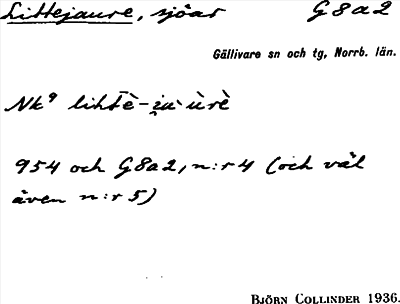 Littejaure, sjöar G8a2
Gällivare sn och tg, Norrb. län.
Nk⁹ lihtḕ-i̯au̯ùrè
954 och G8a2, n:r 4 (och väl
även n:r 5)
BJÖRN COLLINDER 1936.